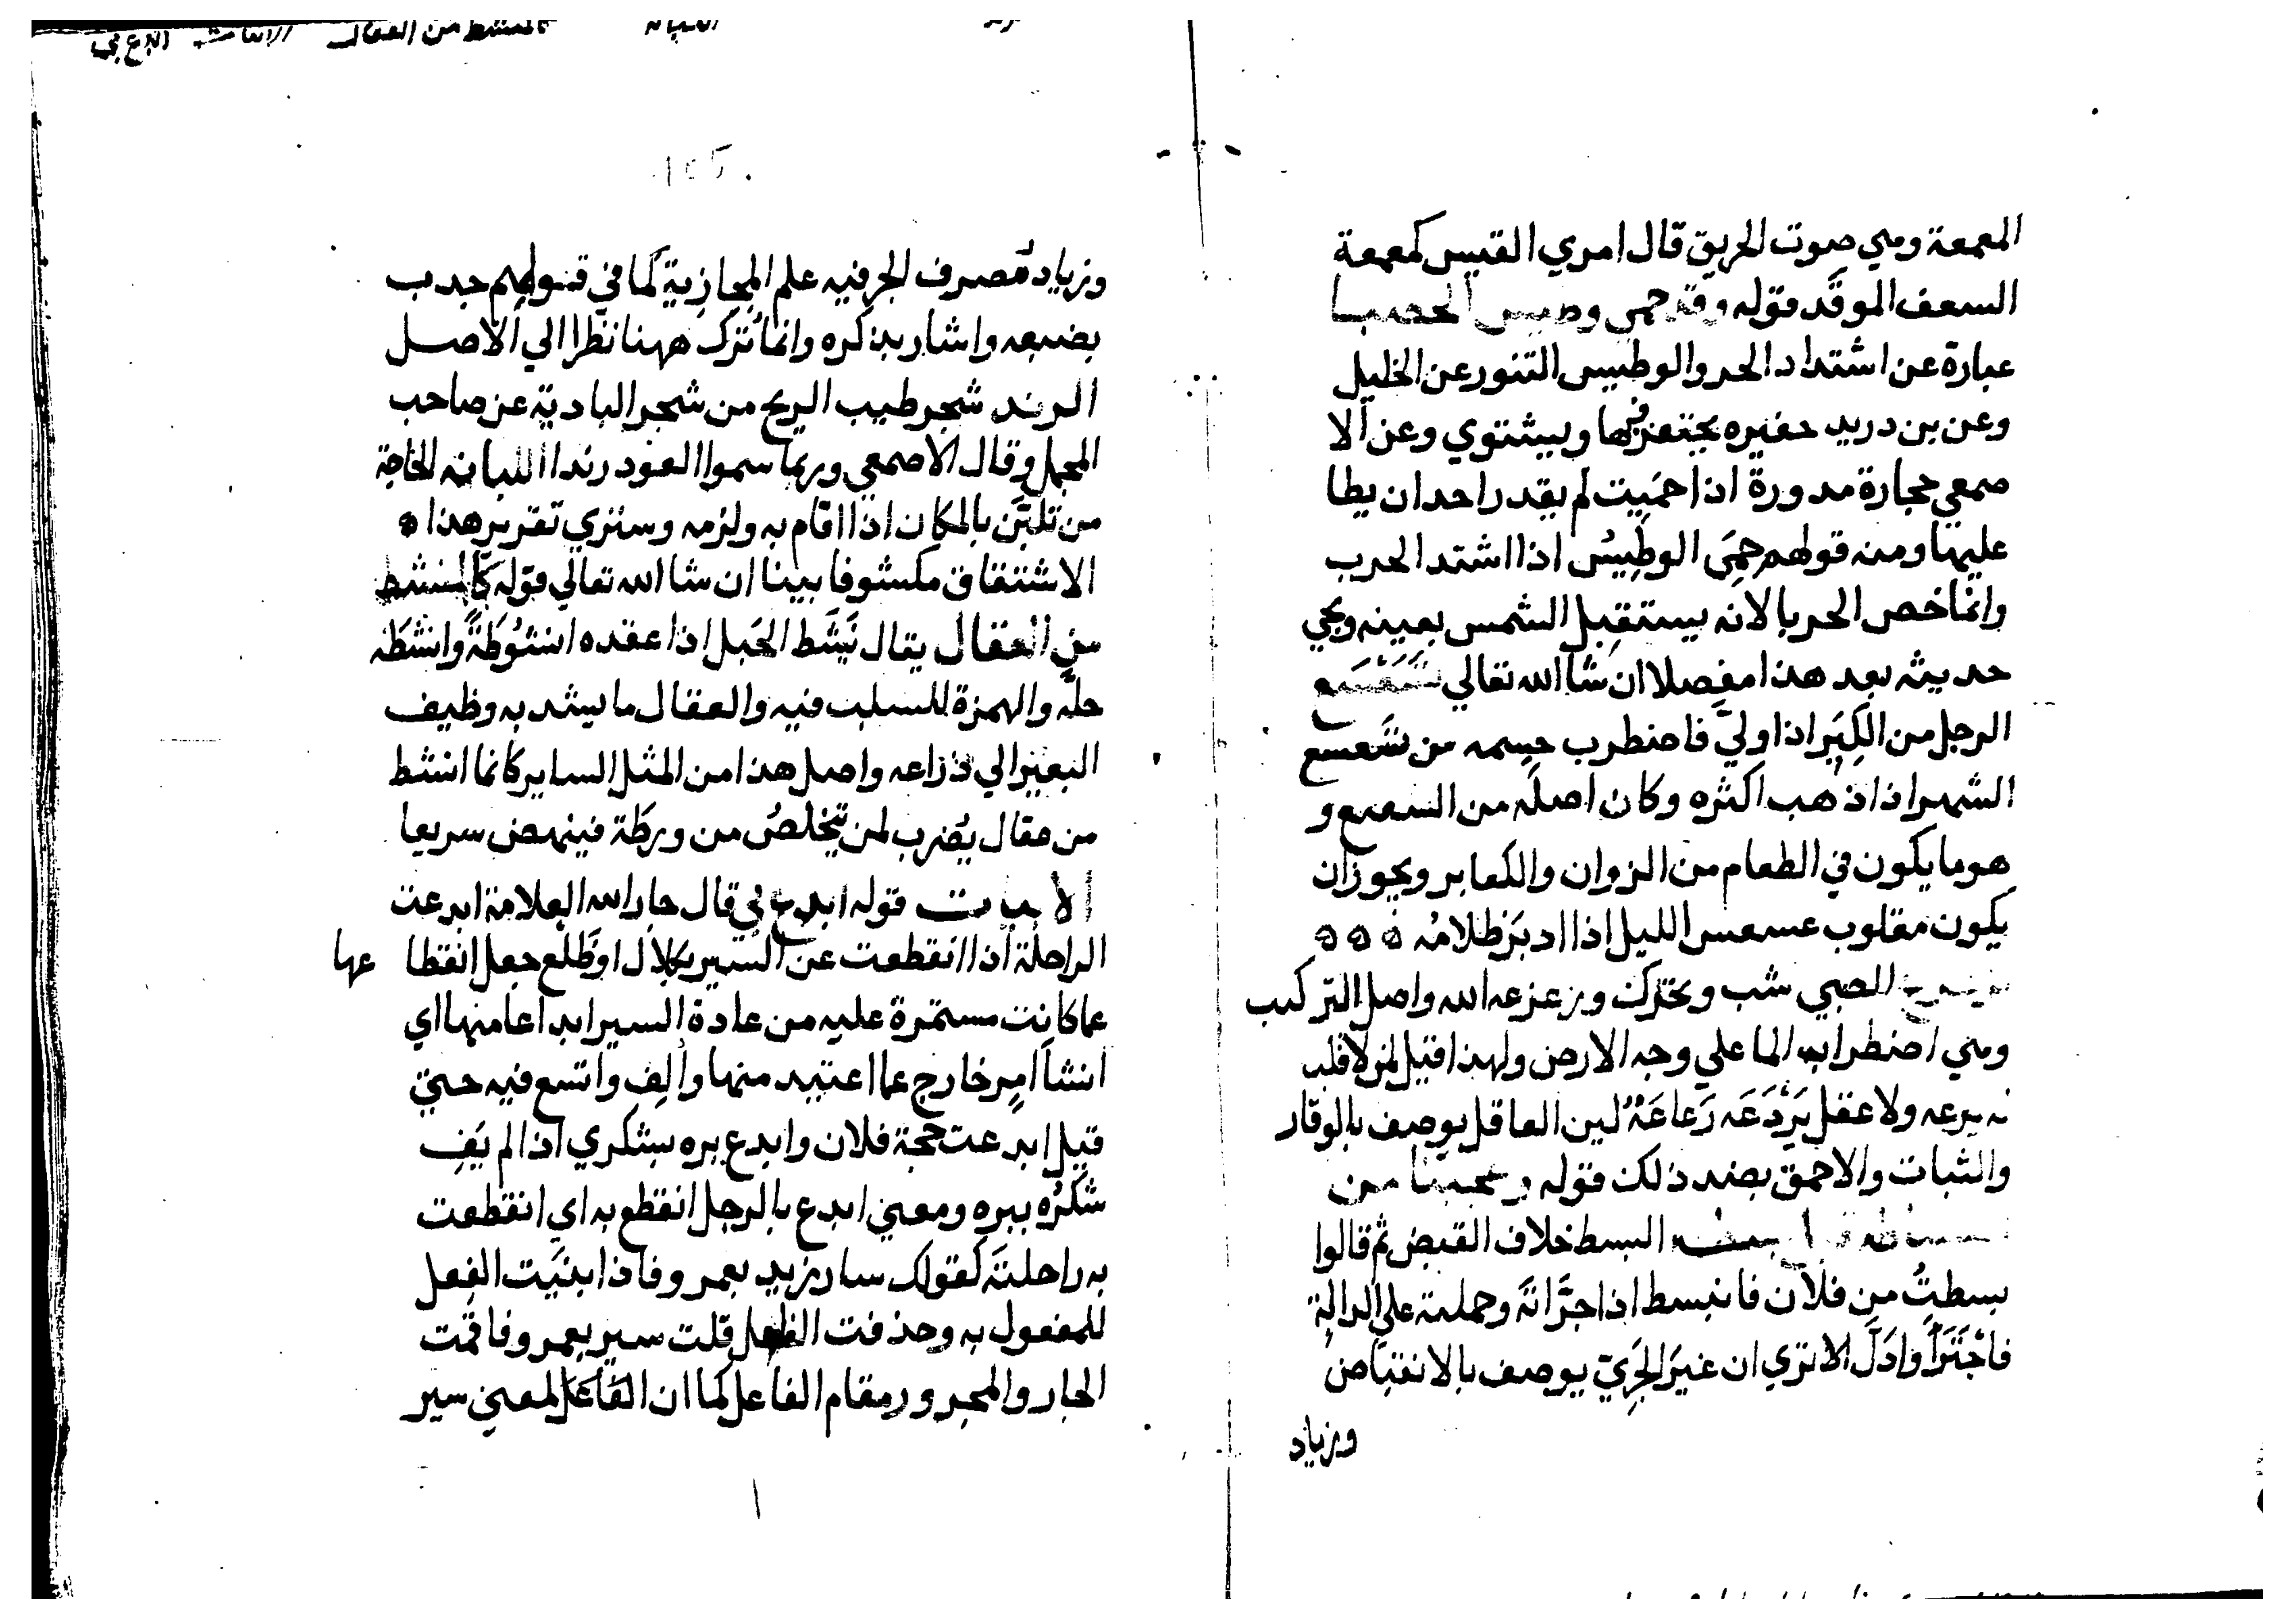 المعمعة وهي صوت الحريق قال امري القيس كمعمعة
السعف الموقد قوله وقد حمي وطيس الحصبا
عبارة عن اشتداد الحر والوطيس التنور عن الخليل
وعن بن دريد حفيره يختبز فيها ويشتوي وعن الا
صمعي حجارة مدورة اذا حَمِيت لم يقدر احد ان يطا
عليها ومنه قولهم حَمِيَ الوطِيسُ اذا اشتد الحرب
وانما خص الحربا لانه يستقبل الشمس بعينه ويجي
حديثه بعد هذا مفصلا ان شآ الله تعالي تَسَعْسَع
الرجل من الكِبَر اذا وليّ فاضطرب جسمه من تسَعسع
الشهر اذا ذهب اكثره وكان اصله من السعيع و
هو ما يكون في الطعام من الزوان والكعابر ويجوز ان
يكون مقلوب عسعس الليل اذا ادبَرَ ظلامُه ه ه ه
الصبي شب وتحرك وزعزعه الله واصل التركيب
وهي اضطراب الما علي وجه الارض ولهذا قيل لمن لا قلب
له يرعه ولا عقل يَرْدَعَه رَعاعَةٌ لين العاقل يوصف بالوقار
والثبات والاحمق بضد ذلك قوله من
البسط خلاف القبض ثم قالوا
بسطتُ من فلان فانبسط اذا جرَّاتَه وحملته علي الدالة
فاجْتَرَأَ وادَلَّ الا تري ان غيرَ الجَرِيّ يوصف بالانقباض
وزياد
وزيادة مصرف الجر فيه علم المجازية كما في قولهم جدب
بضبعه واشار بذكره وانما تُترَك ههنا نظرا الي الاصل
الرند شجر طيب الريح من شجر البادية عن صاحب
المجمل وقال الاصمعي وربما سموا العود رندا اللبانه الحاجة
من تلبَّن بالمكان اذا اقام به ولزمه وستري تقرير هذا ه
الاشتقاق مكشوفا بينا ان شا الله تعالي قوله كالمنشط
من العقال يقال نَشَط الحَبل اذا عقده انشُوطَةً وانشَطَه
حلّه والهمزة للسلب فيه والعقال ما يشد به وظيف
البعير الي ذراعه واصل هذا من المثل الساير كانما انشط
من عقال يُضرب لمن يتخلصُ من ورطة فينهض سريعا
قوله ابدع بي قال جار الله العلامة ابدعت
الراحلة اذا انقطعت عن السير بكلال او ظلع جعل انقطا عها
عما كانت مستمرة عليه من عادة السير ابداعا منها اي
انشا امرٍ خارج عما اعتيد منها وألِف واتسع فيه حتي
قيل ابدعت حجة فلان وابدع بره بشكري اذا لم يَفِ
شكرُه ببره ومعني ابدع بالرجل انقطع به اي انقطعت
به راحلته كقولك سار زيد بعمرو فاذا بنيت الفِعل
للمفعول به وحذفت الفاعل قلت سِير بعمرو فاقمت
الجار والمجرور مقام الفاعل كما ان الفاعل لمعني سير